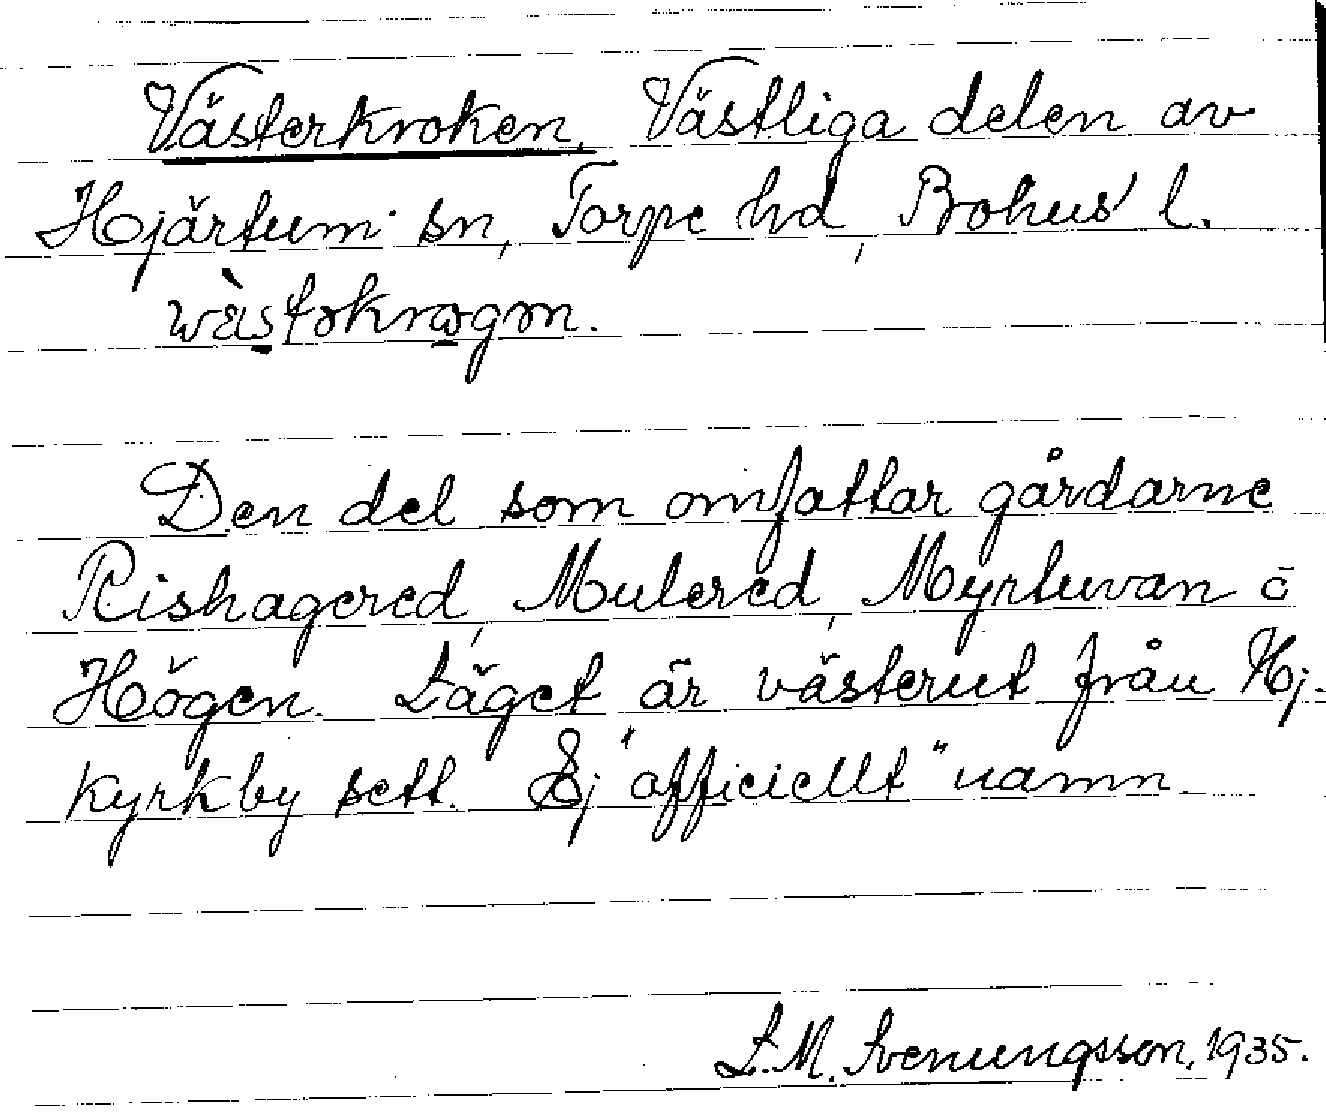 Västerkroken, Västliga delen av
Hjärtum sn, Torpe hd, Bohus' l.
Den del som omfattar gårdarne
Rishagered, Mulered, Myrtuvan o
Högen. Läget är västerut från Hj.
kyrkby sett. Ej "officiellt" namn.
L.M. Svenungsson, 1935.